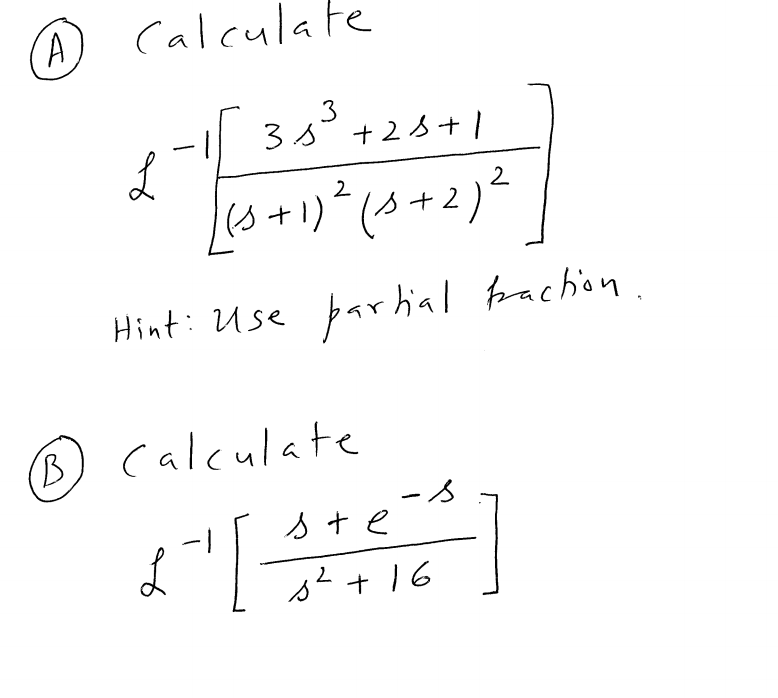 (A) Calculate
ℒ⁻¹[ (3s³ + 2s + 1) / ((s + 1)² (s + 2)²) ]
Hint: Use partial fraction.
(B) Calculate
ℒ⁻¹[ (s + e⁻ˢ) / (s² + 16) ]